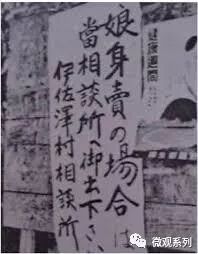 娘身賣の場合は
當相談所へ御出下さい、
伊佐澤村相談所
健康週間
微观系列